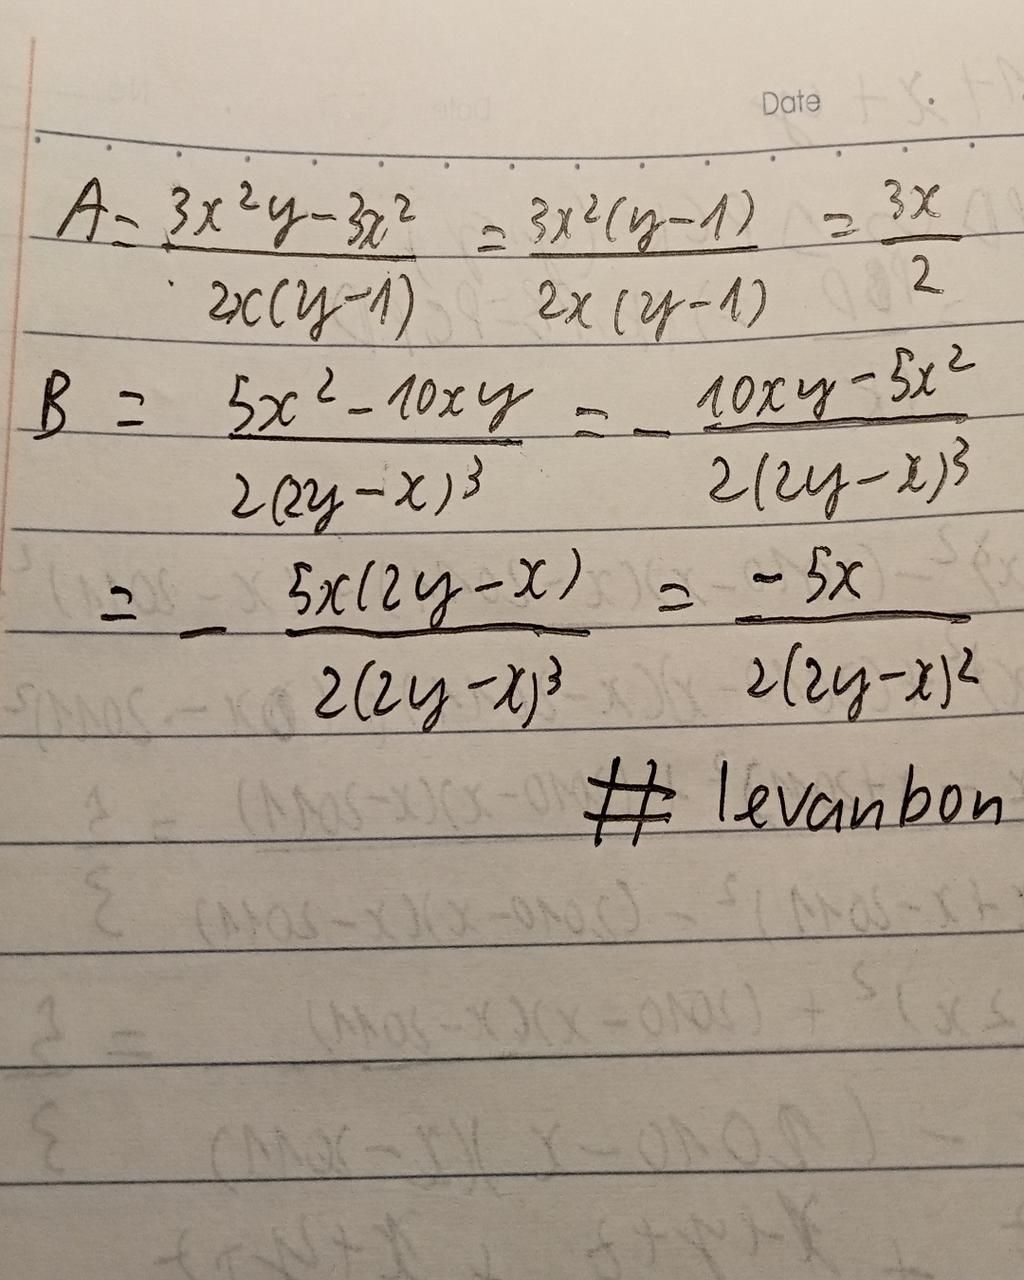 Date
A = \frac{3x^2y - 3x^2}{2x(y-1)} = \frac{3x^2(y-1)}{2x(y-1)} = \frac{3x}{2}
B = \frac{5x^2 - 10xy}{2(2y-x)^3} = - \frac{10xy - 5x^2}{2(2y-x)^3}
= - \frac{5x(2y-x)}{2(2y-x)^3} = \frac{-5x}{2(2y-x)^2}
# levanbon